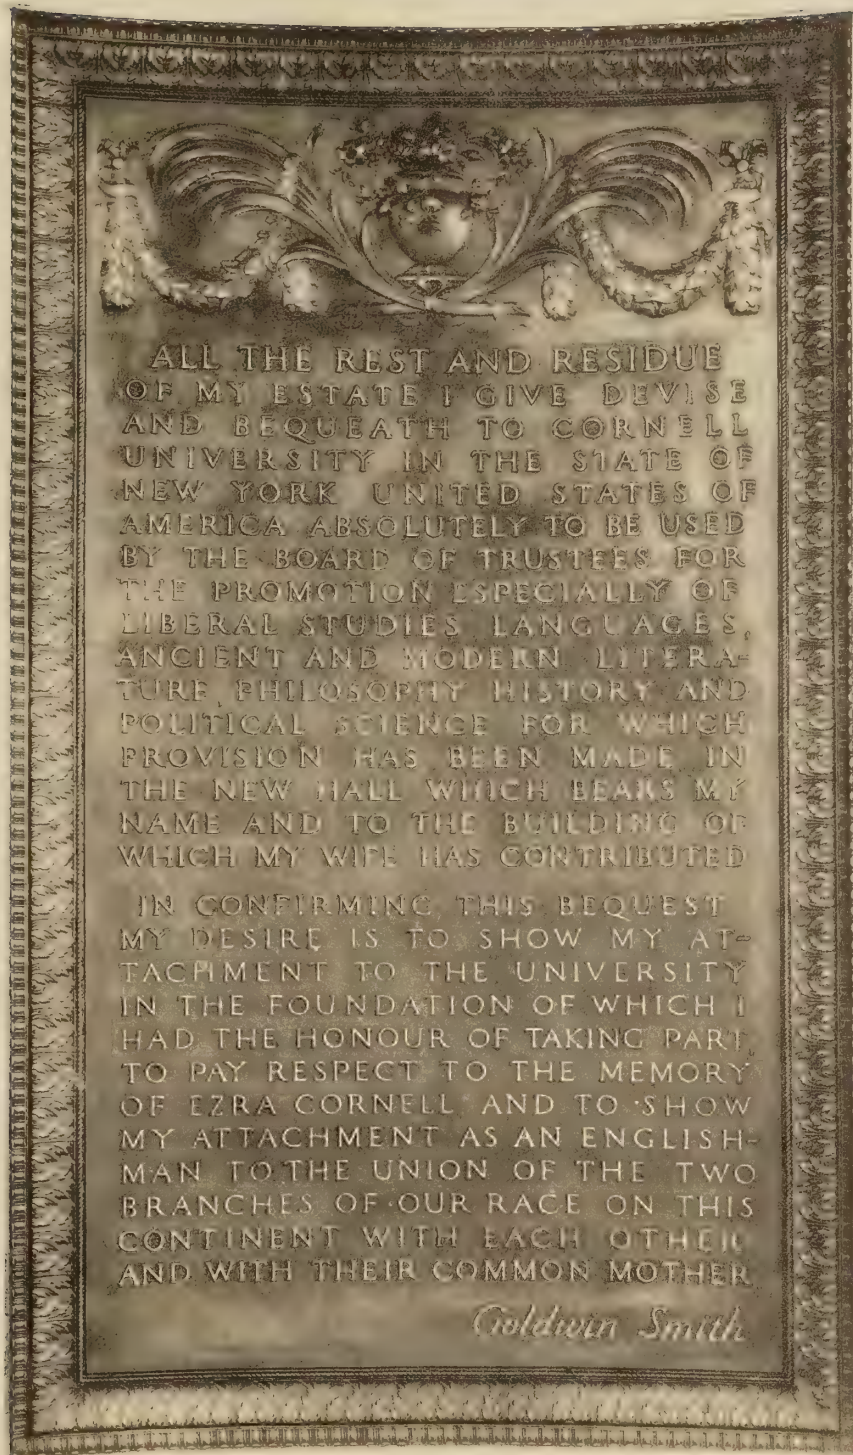 ALL THE REST AND RESIDUE
OF MY ESTATE I GIVE DEVISE
AND BEQUEATH TO CORNELL
UNIVERSITY IN THE STATE OF
NEW YORK UNITED STATES OF
AMERICA ABSOLUTELY TO BE USED
BY THE BOARD OF TRUSTEES FOR
THE PROMOTION ESPECIALLY OF
LIBERAL STUDIES LANGUAGES,
ANCIENT AND MODERN LITERA-
TURE, PHILOSOPHY HISTORY AND
POLITICAL SCIENCE FOR WHICH
PROVISION HAS BEEN MADE IN
THE NEW HALL WHICH BEARS MY
NAME AND TO THE BUILDING OF
WHICH MY WIFE HAS CONTRIBUTED
IN CONFIRMING THIS BEQUEST
MY DESIRE IS TO SHOW MY AT-
TACHMENT TO THE UNIVERSITY
IN THE FOUNDATION OF WHICH I
HAD THE HONOUR OF TAKING PART,
TO PAY RESPECT TO THE MEMORY
OF EZRA CORNELL AND TO SHOW
MY ATTACHMENT AS AN ENGLISH-
MAN TO THE UNION OF THE TWO
BRANCHES OF OUR RACE ON THIS
CONTINENT WITH EACH OTHER
AND WITH THEIR COMMON MOTHER
Goldwin Smith